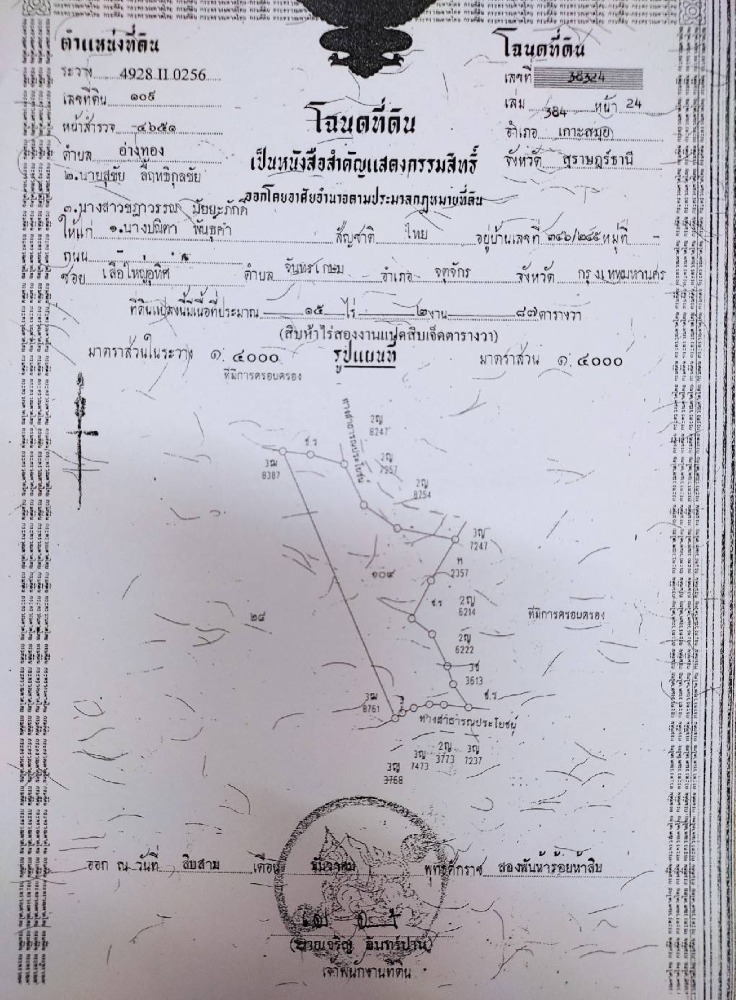 ตำแหน่งที่ดิน
ระวาง 4928 II 0256
เลขที่ดิน ๑๐๕
หน้าสำรวจ ๔๖๕๑
ตำบล อ่างทอง
โฉนดที่ดิน
เลขที่ 36324
เล่ม 384 หน้า 24
อำเภอ เกาะสมุย
จังหวัด สุราษฎร์ธานี
โฉนดที่ดิน
เป็นหนังสือสำคัญแสดงกรรมสิทธิ์
ออกโดยอาศัยอำนาจตามประมวลกฎหมายที่ดิน
๒.นายสุชัย ลี้ฤทธิกุลชัย
๓.นางสาวชฎาวรรณ มัยยะภักดี
ให้แก่ ๑.นางปณิตา พันธุ์คำ สัญชาติ ไทย อยู่บ้านเลขที่ ๓๔๖/๒๔๕ หมู่ที่ -
ถนน
ซอย เสือใหญ่อุทิศ ตำบล จันทรเกษม อำเภอ จตุจักร จังหวัด กรุงเทพมหานคร
ที่ดินแปลงนี้มีเนื้อที่ประมาณ ๑๕ ไร่ ๒ งาน ๘๗ ตารางวา
(สิบห้าไร่สองงานแปดสิบเจ็ดตารางวา)
มาตราส่วนในระวาง ๑: ๔๐๐๐ รูปแผนที่ มาตราส่วน ๑: ๔๐๐๐
ที่มีการครอบครอง
ทางสาธารณประโยชน์
2ญ
8247
ช.ร
3ฌ
8387
2ญ
7257
2ญ
8254
3ญ
7247
ห
2357
๑๐๔
ช.ร
2ญ
6214
ที่มีการครอบครอง
๒๕
2ญ
6222
3ช
3613
ช.ร
3ฌ
8761
ทางสาธารณประโยชน์
3ญ
3768
3ญ
7473
2ญ
3773
3ญ
7237
ออก ณ วันที่ สิบสาม เดือน ธันวาคม พุทธศักราช สองพันห้าร้อยห้าสิบ
(นายเจริญ อินทร์ปาน)
เจ้าพนักงานที่ดิน